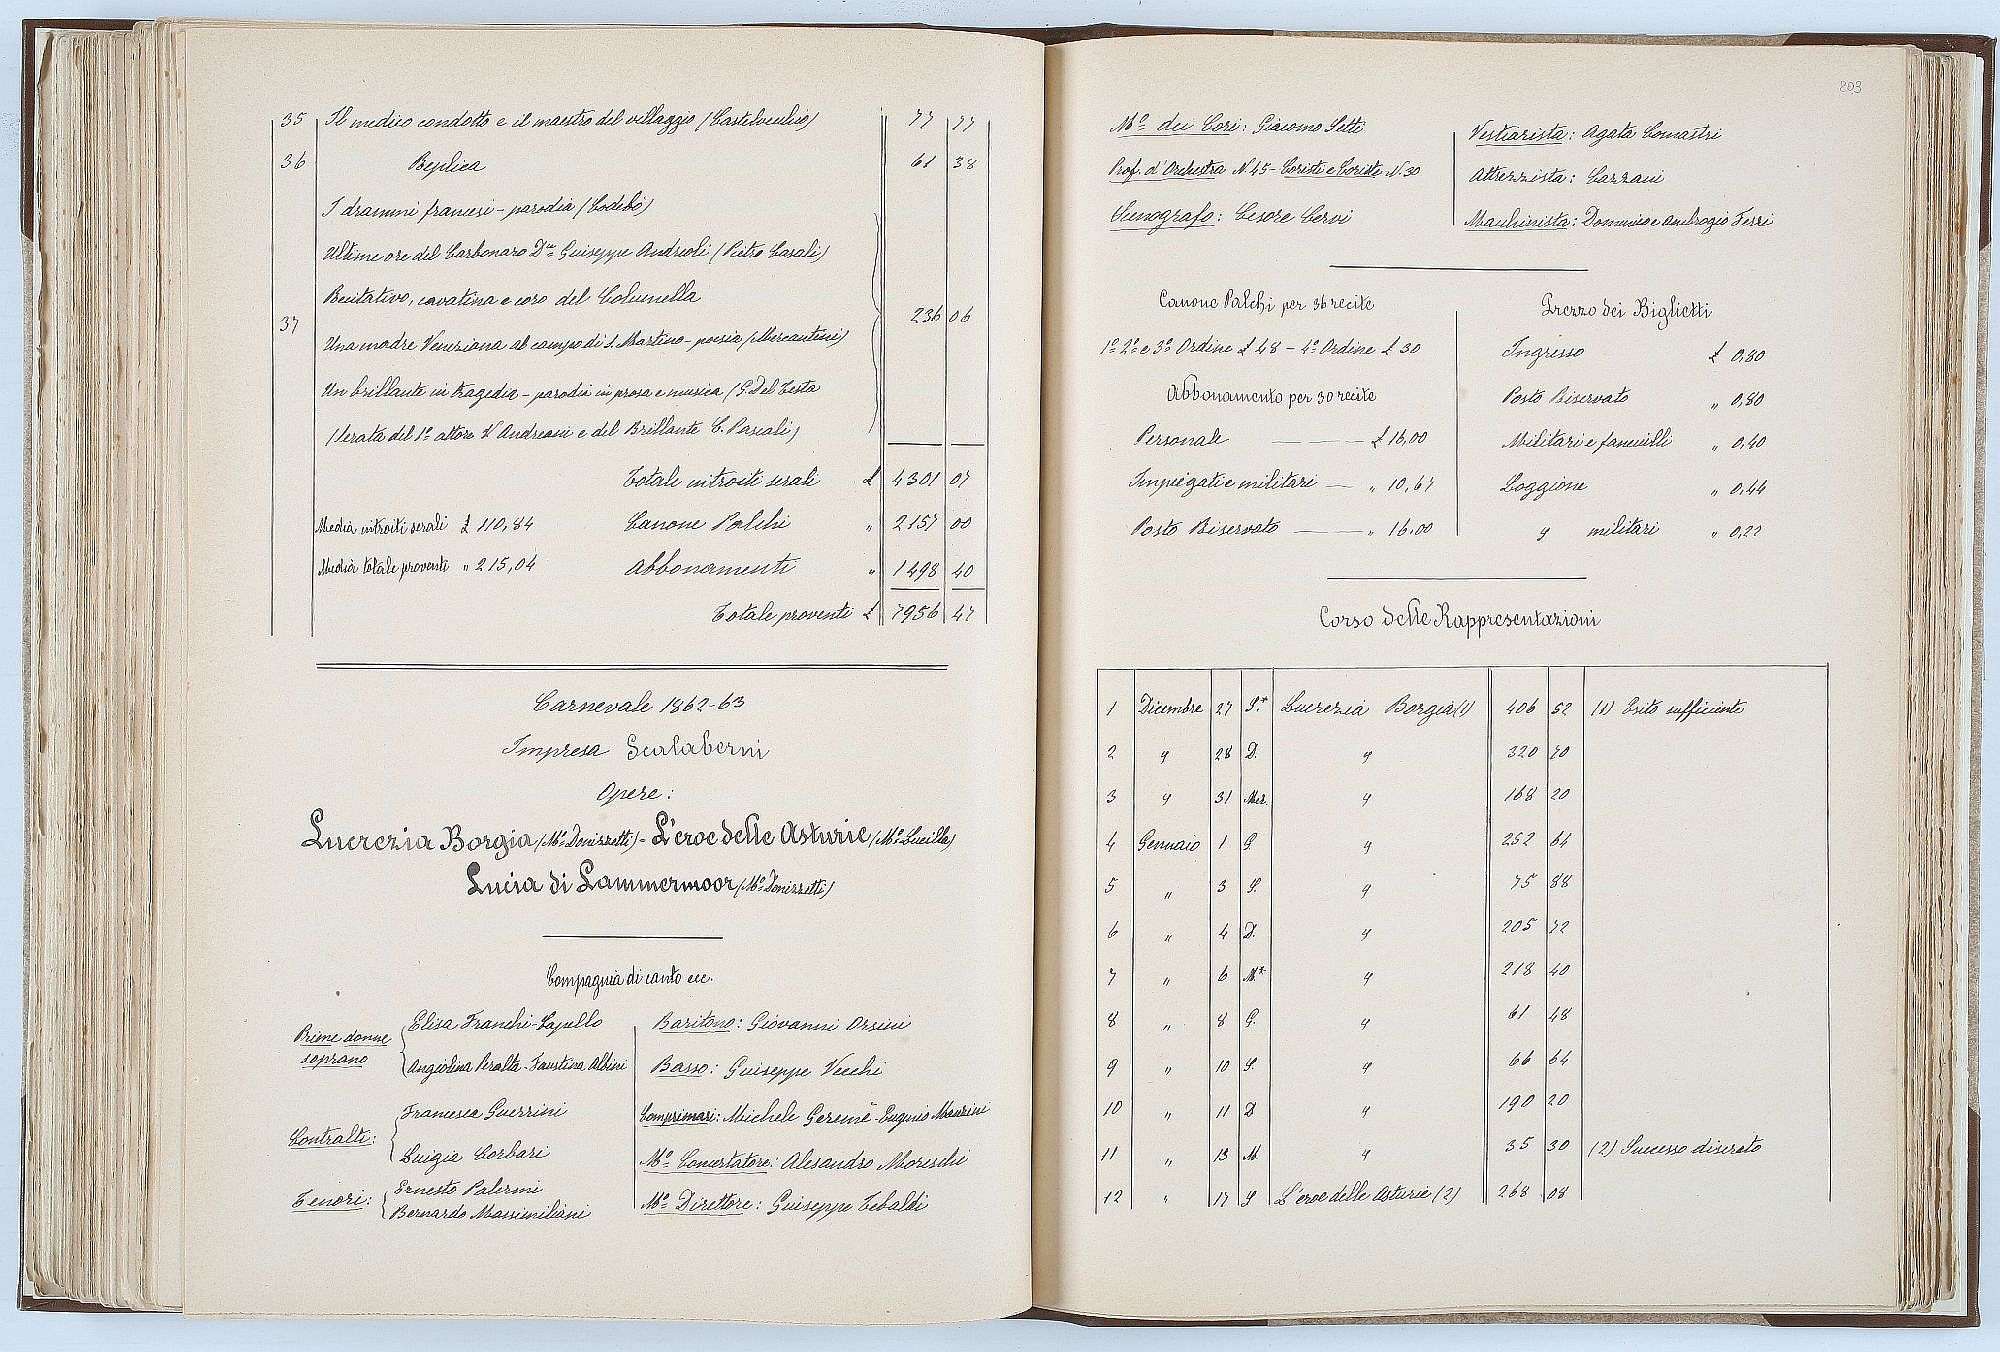 35 Il medico condotto e il maestro del villaggio (Castelvecchio) 77 77
36 Replica 61 38
I drammi francesi - parodia (Codebò)
Ultime ore del Carbonaro Dn Giuseppe Andreoli (Pietro Casali)
Recitativo, cavatina e coro del Columella
37 236 06
Una madre Veneziana al campo di S. Martino - poesia (Mercantini)
Un brillante in tragedia - parodia in prosa e musica (G. Del Testa
(Serata del 1º attore V. Andreani e del Brillante C. Pascali)
Totale introiti serali £ 4301 07
Media introiti serali £ 110,84 Canone Palchi " 2157 00
Media totale proventi " 215,04 Abbonamenti " 1498 40
Totale proventi £ 7956 47
Carnevale 1862-63
Impresa Scalaberni
Opere:
Lucrezia Borgia (Mº Donizzetti) - L'eroe delle Asturie (Mº Lucilla)
Lucia di Lammermoor (Mº Donizzetti)
Compagnia di canto ecc.
Prime donne soprano
Elisa Franchi-Capello
Angiolina Peralta - Faustina Albini
Contralti:
Francesca Guerrini
Luigia Corbari
Tenori:
Ernesto Palermi
Bernardo Massimiliani
Baritono: Giovanni Orsini
Basso: Giuseppe Vecchi
Comprimari: Michele Gereme - Eugenio Manzini
Mº Concertatore: Alesandro Moreschi
Mº Direttore: Giuseppe Tebaldi
203
Mº dei Cori: Giacomo Setti
Prof. d'Orchestra N. 45 - Coristi e Coriste N. 30
Scenografo: Cesare Cervi
Vestiarista: Agata Comastri
Attrezzista: Cazzani
Macchinista: Domenico e Ambrogio Ferri
Canone Palchi per 36 recite
1º 2º e 3º Ordine £ 48 - 4º Ordine £ 30
Abbonamento per 30 recite
Personale £ 16,00
Impiegati e militari " 10,67
Posto Riservato " 16,00
Prezzo dei Biglietti
Ingresso £ 0,80
Posto Riservato " 0,80
Militari e fanciulli " 0,40
Loggione " 0,44
" militari " 0,22
Corso delle Rappresentazioni
1 Dicembre 27 S.* Lucrezia Borgia (1) 406 52 (1) Esito sufficiente
2 " 28 D. " 320 70
3 " 31 Mer. " 168 20
4 Gennaio 1 G. " 252 64
5 " 3 S. " 75 88
6 " 4 D. " 205 72
7 " 6 M.* " 218 40
8 " 8 G. " 61 48
9 " 10 S. " 66 64
10 " 11 D " 190 20
11 " 13 M. " 35 30 (2) Successo discreto
12 " 17 S L'eroe delle Asturie (2) 268 08